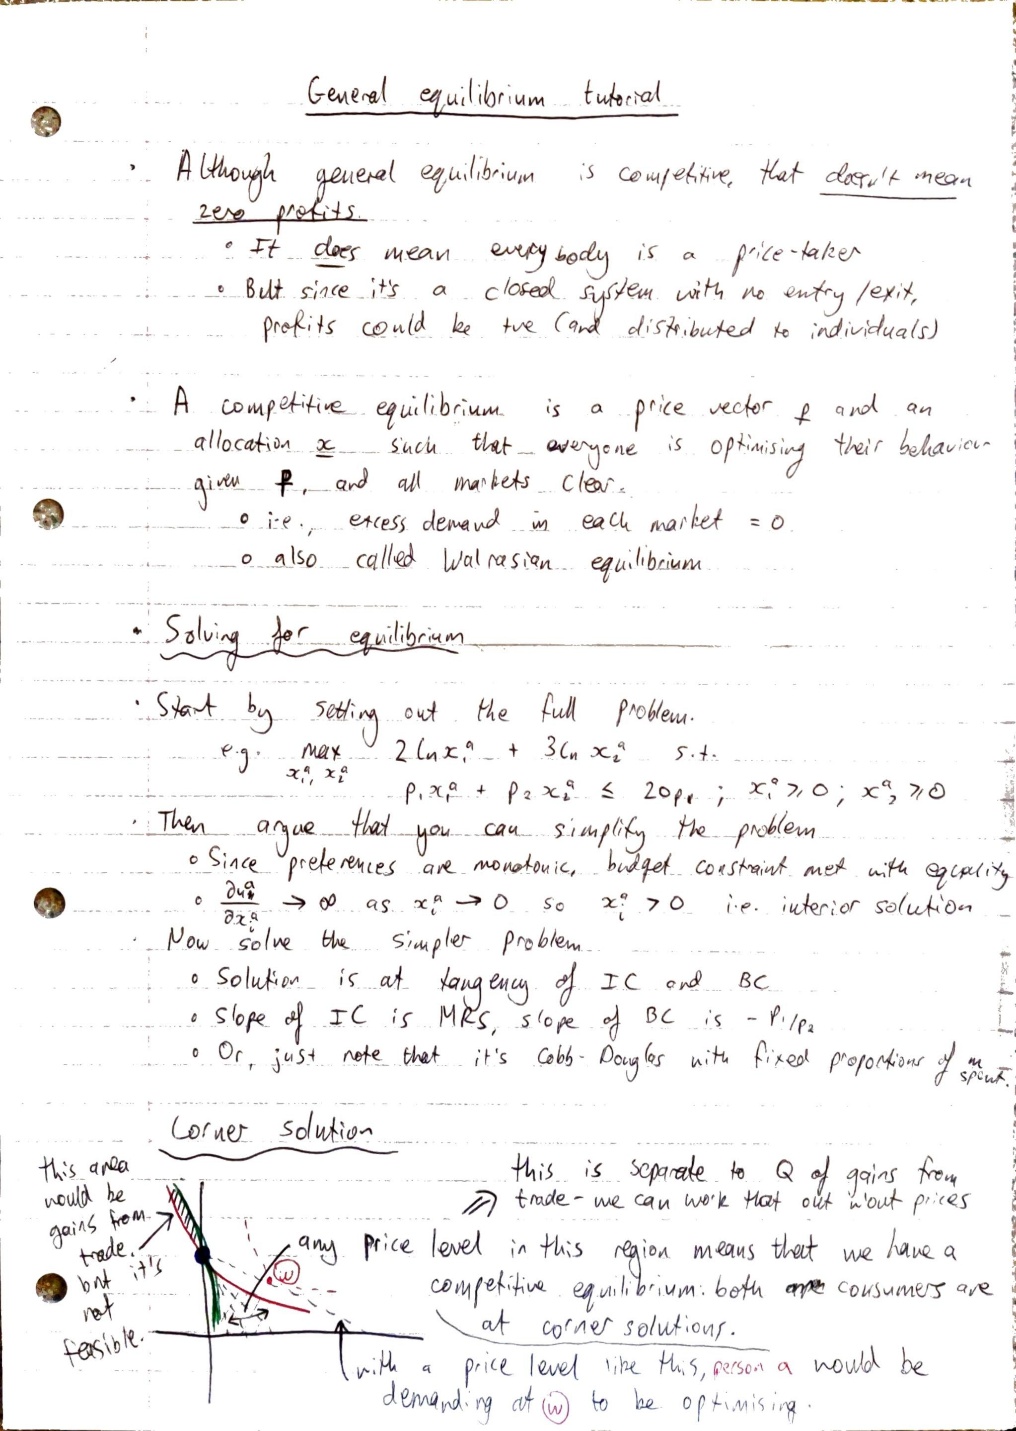 General equilibrium tutorial
· Although general equilibrium is competitive, that doesn't mean
zero profits.
∘ It does mean everybody is a price-taker
∘ But since it's a closed system with no entry/exit,
profits could be +ve (and distributed to individuals)
· A competitive equilibrium is a price vector p and an
allocation x such that everyone is optimising their behaviour
given p, and all markets clear.
∘ i.e., excess demand in each market = 0.
∘ also called Walrasian equilibrium
· Solving for equilibrium
· Start by setting out the full problem.
e.g. max 2 ln x₁ᵃ + 3 ln x₂ᵃ s.t.
x₁ᵃ, x₂ᵃ
p₁x₁ᵃ + p₂x₂ᵃ ≤ 20p₁ ; x₁ᵃ ≥ 0 ; x₂ᵃ ≥ 0
· Then argue that you can simplify the problem
∘ Since preferences are monotonic, budget constraint met with equality
∘ ∂uᵃ/∂xᵢᵃ → ∞ as xᵢᵃ → 0 so xᵢᵃ > 0 i.e. interior solution
· Now solve the simpler problem
∘ Solution is at tangency of IC and BC
∘ Slope of IC is MRS, slope of BC is - P₁/P₂
∘ Or, just note that it's Cobb-Douglas with fixed proportions of m
spent.
Corner solution
this area
would be
gains from
trade.
but it's
not
feasible.
this is separate to Q of gains from
trade - we can work that out w'out prices
any price level in this region means that we have a
competitive equilibrium: both consumers are
at corner solutions.
w
with a price level like this, person a would be
demanding at w to be optimising.